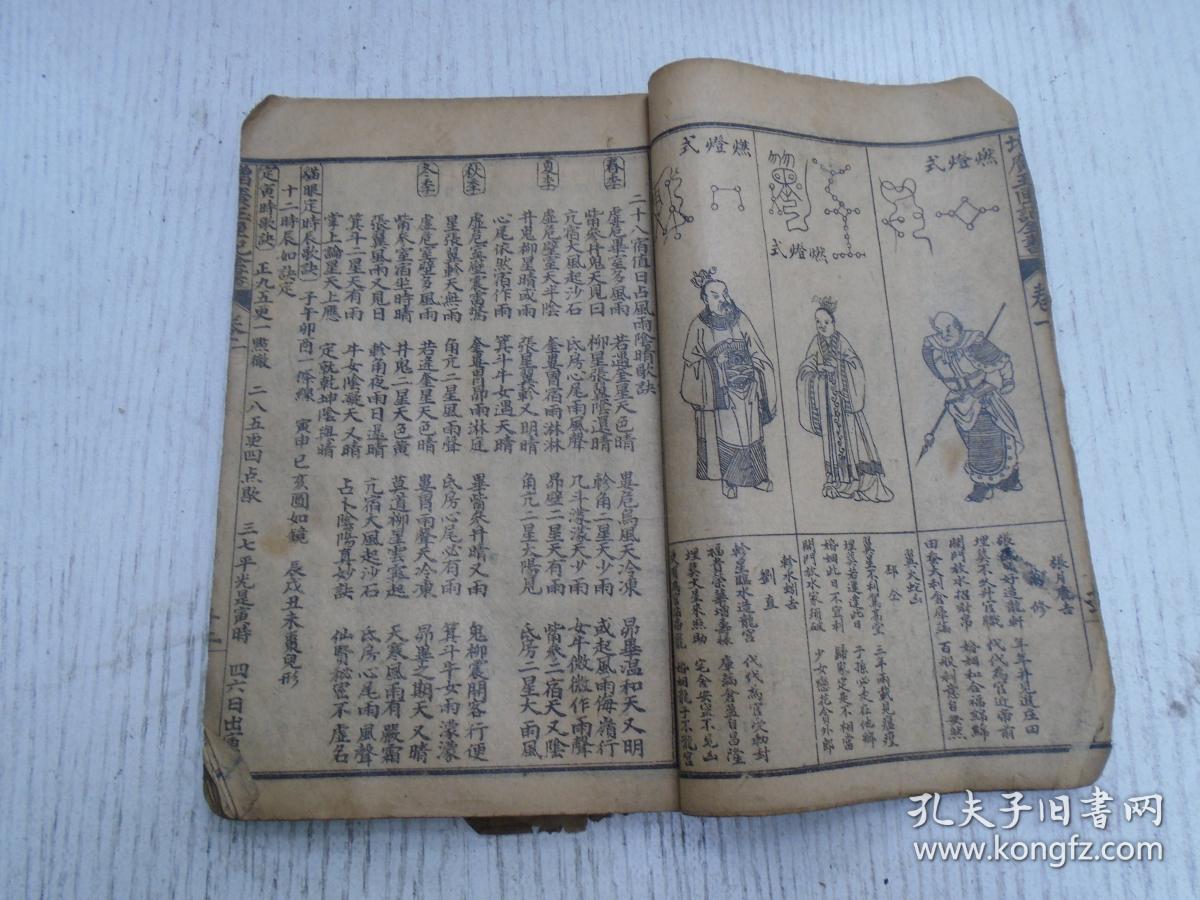 增廣玉匣記全書
卷一
燃燈式
燃燈式
燃燈式
張月鹿吉
張星日好造龍軒
年年并見進庄田
埋葬不久升官職
代代為官近帝前
開門放水招財帛
婚姻和合福綿綿
田蚕大利倉庫滿
百般利意自安然
翼火蛇凶
邳仝
翼星不利架高堂
三年兩載見瘟瘽
埋葬若還逢此日
子孫必走在他鄉
婚姻此日不宜利
歸家定是不相當
開門放水家須破
少女戀花人自外郎
軫水蚓吉
劉直
軫星臨水造龍宮
代代為官受勅封
福貴榮華增壽祿
庫滿倉盈自昌隆
埋葬文星來照助
宅舍安寧不見凶
婚姻龍子下龍宮
二十八宿值日占風雨陰晴歌訣
春季
虛危畢室多風雨
若遇奎星天色晴
婁危烏風天冷凍
昴畢溫和天又明
觜參井鬼天見日
柳星張翼陰還晴
軫角二星天少雨
或起風雨侮嶺行
亢宿大風起沙石
氐房心尾雨風聲
几斗濛濛天少雨
女牛微微作雨聲
夏季
虛危壁室天半陰
奎婁胃宿雨淋淋
昴壁二星天有雨
觜參二宿天又陰
井鬼柳星晴或雨
張星翼軫又明晴
角亢二星太陽見
氐房二星大雨風
心尾依然宿作雨
箕斗牛女遇天晴
秋季
虛危室壁震雷驚
奎婁胃昴雨淋庭
畢觜參井晴又雨
鬼柳震開客行便
星張翼軫天無雨
角亢二星風雨聲
氐房心尾必有雨
箕斗牛女雨濛濛
冬季
虛危室壁多風雨
若逢奎星天色晴
婁胃雨聲天冷凍
昴畢之期天又晴
觜參室宿坐時晴
井鬼二星天色黃
莫道柳星雲霧起
天寒風雨有嚴霜
張翼風雨又見日
軫角夜雨日還晴
亢宿大風起沙石
氐房心尾雨風聲
箕斗二星天有雨
牛女陰凝天又晴
占卜陰陽真妙訣
仙賢秘密不虛名
掌上論星天上應
定就乾坤陰與晴
貓眼定時辰歌訣
子午卯酉一條線
寅申巳亥圓如鏡
辰戌丑未棗兒形
十二時辰如訣定
定寅時歌訣
正九五更二點徹
二八五更四点歇
三七平光是寅時
四六日出